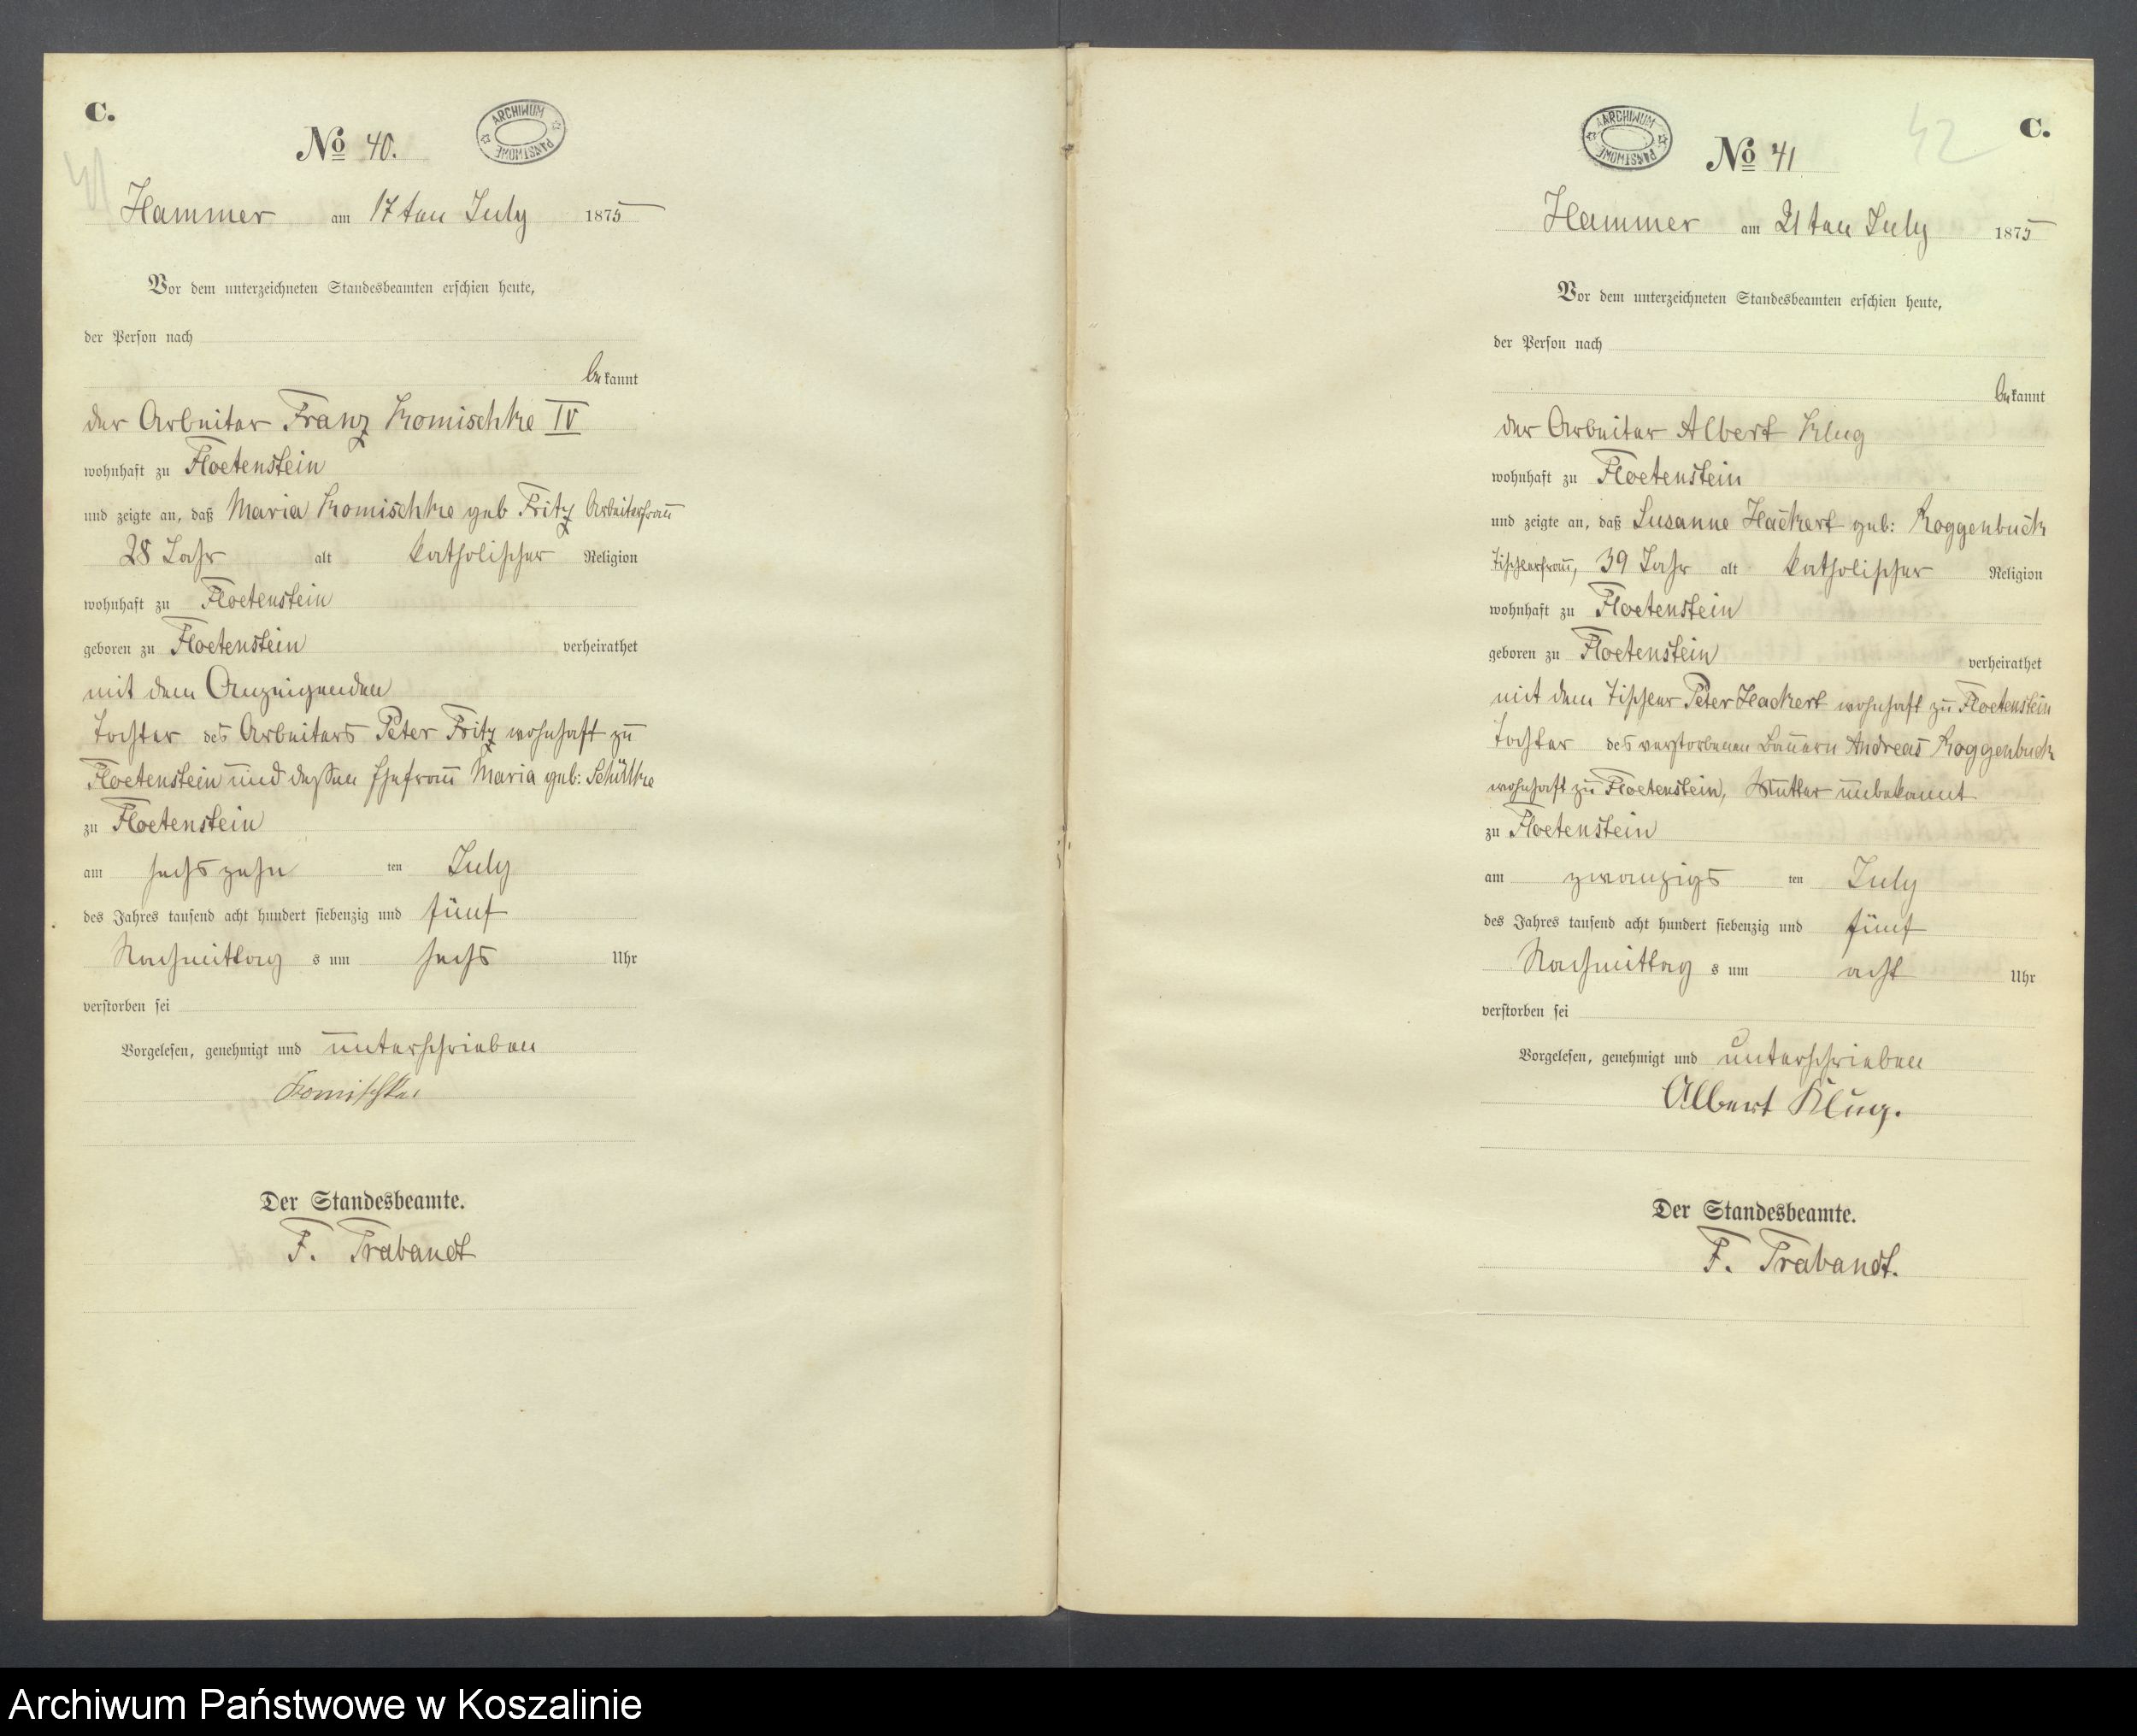 C.
No 40.
ARCHIWUM PAŃSTWOWE
41
Hammer am 17ten July 1875
Vor dem unterzeichneten Standesbeamten erschien heute,
der Person nach
bekannt
der Arbeiter Franz Komischke IV
wohnhaft zu Floetenstein
und zeigte an, daß Maria Komischke geb Fritz Arbeiterfrau
28 Jahr alt katholischer Religion
wohnhaft zu Floetenstein
geboren zu Floetenstein verheirathet
mit dem Anzeigenden
Tochter des Arbeiters Peter Fritz wohnhaft zu
Floetenstein und dessen Ehefrau Maria geb: Schüttke
zu Floetenstein
am sechszehn ten July
des Jahres tausend acht hundert siebenzig und fünf
Nachmittag s um sechs Uhr
verstorben sei
Vorgelesen, genehmigt und unterschrieben
Komischke
Der Standesbeamte.
F. Trabandt
C.
42
ARCHIWUM PAŃSTWOWE
No 41
Hammer am 21ten July 1875
Vor dem unterzeichneten Standesbeamten erschien heute,
der Person nach
bekannt
der Arbeiter Albert Klug
wohnhaft zu Floetenstein
und zeigte an, daß Susanne Hackert geb: Roggenbuck
Tischlerfrau, 39 Jahr alt katholischer Religion
wohnhaft zu Floetenstein
geboren zu Floetenstein verheirathet
mit dem Tischler Peter Hackert wohnhaft zu Floetenstein
Tochter des verstorbenen Bauern Andreas Roggenbuck
wohnhaft zu Floetenstein, Mutter unbekannt
zu Floetenstein
am zwanzigs ten July
des Jahres tausend acht hundert siebenzig und fünf
Nachmittag s um acht Uhr
verstorben sei
Vorgelesen, genehmigt und unterschrieben
Albert Klug.
Der Standesbeamte.
F. Trabandt.
Archiwum Państwowe w Koszalinie